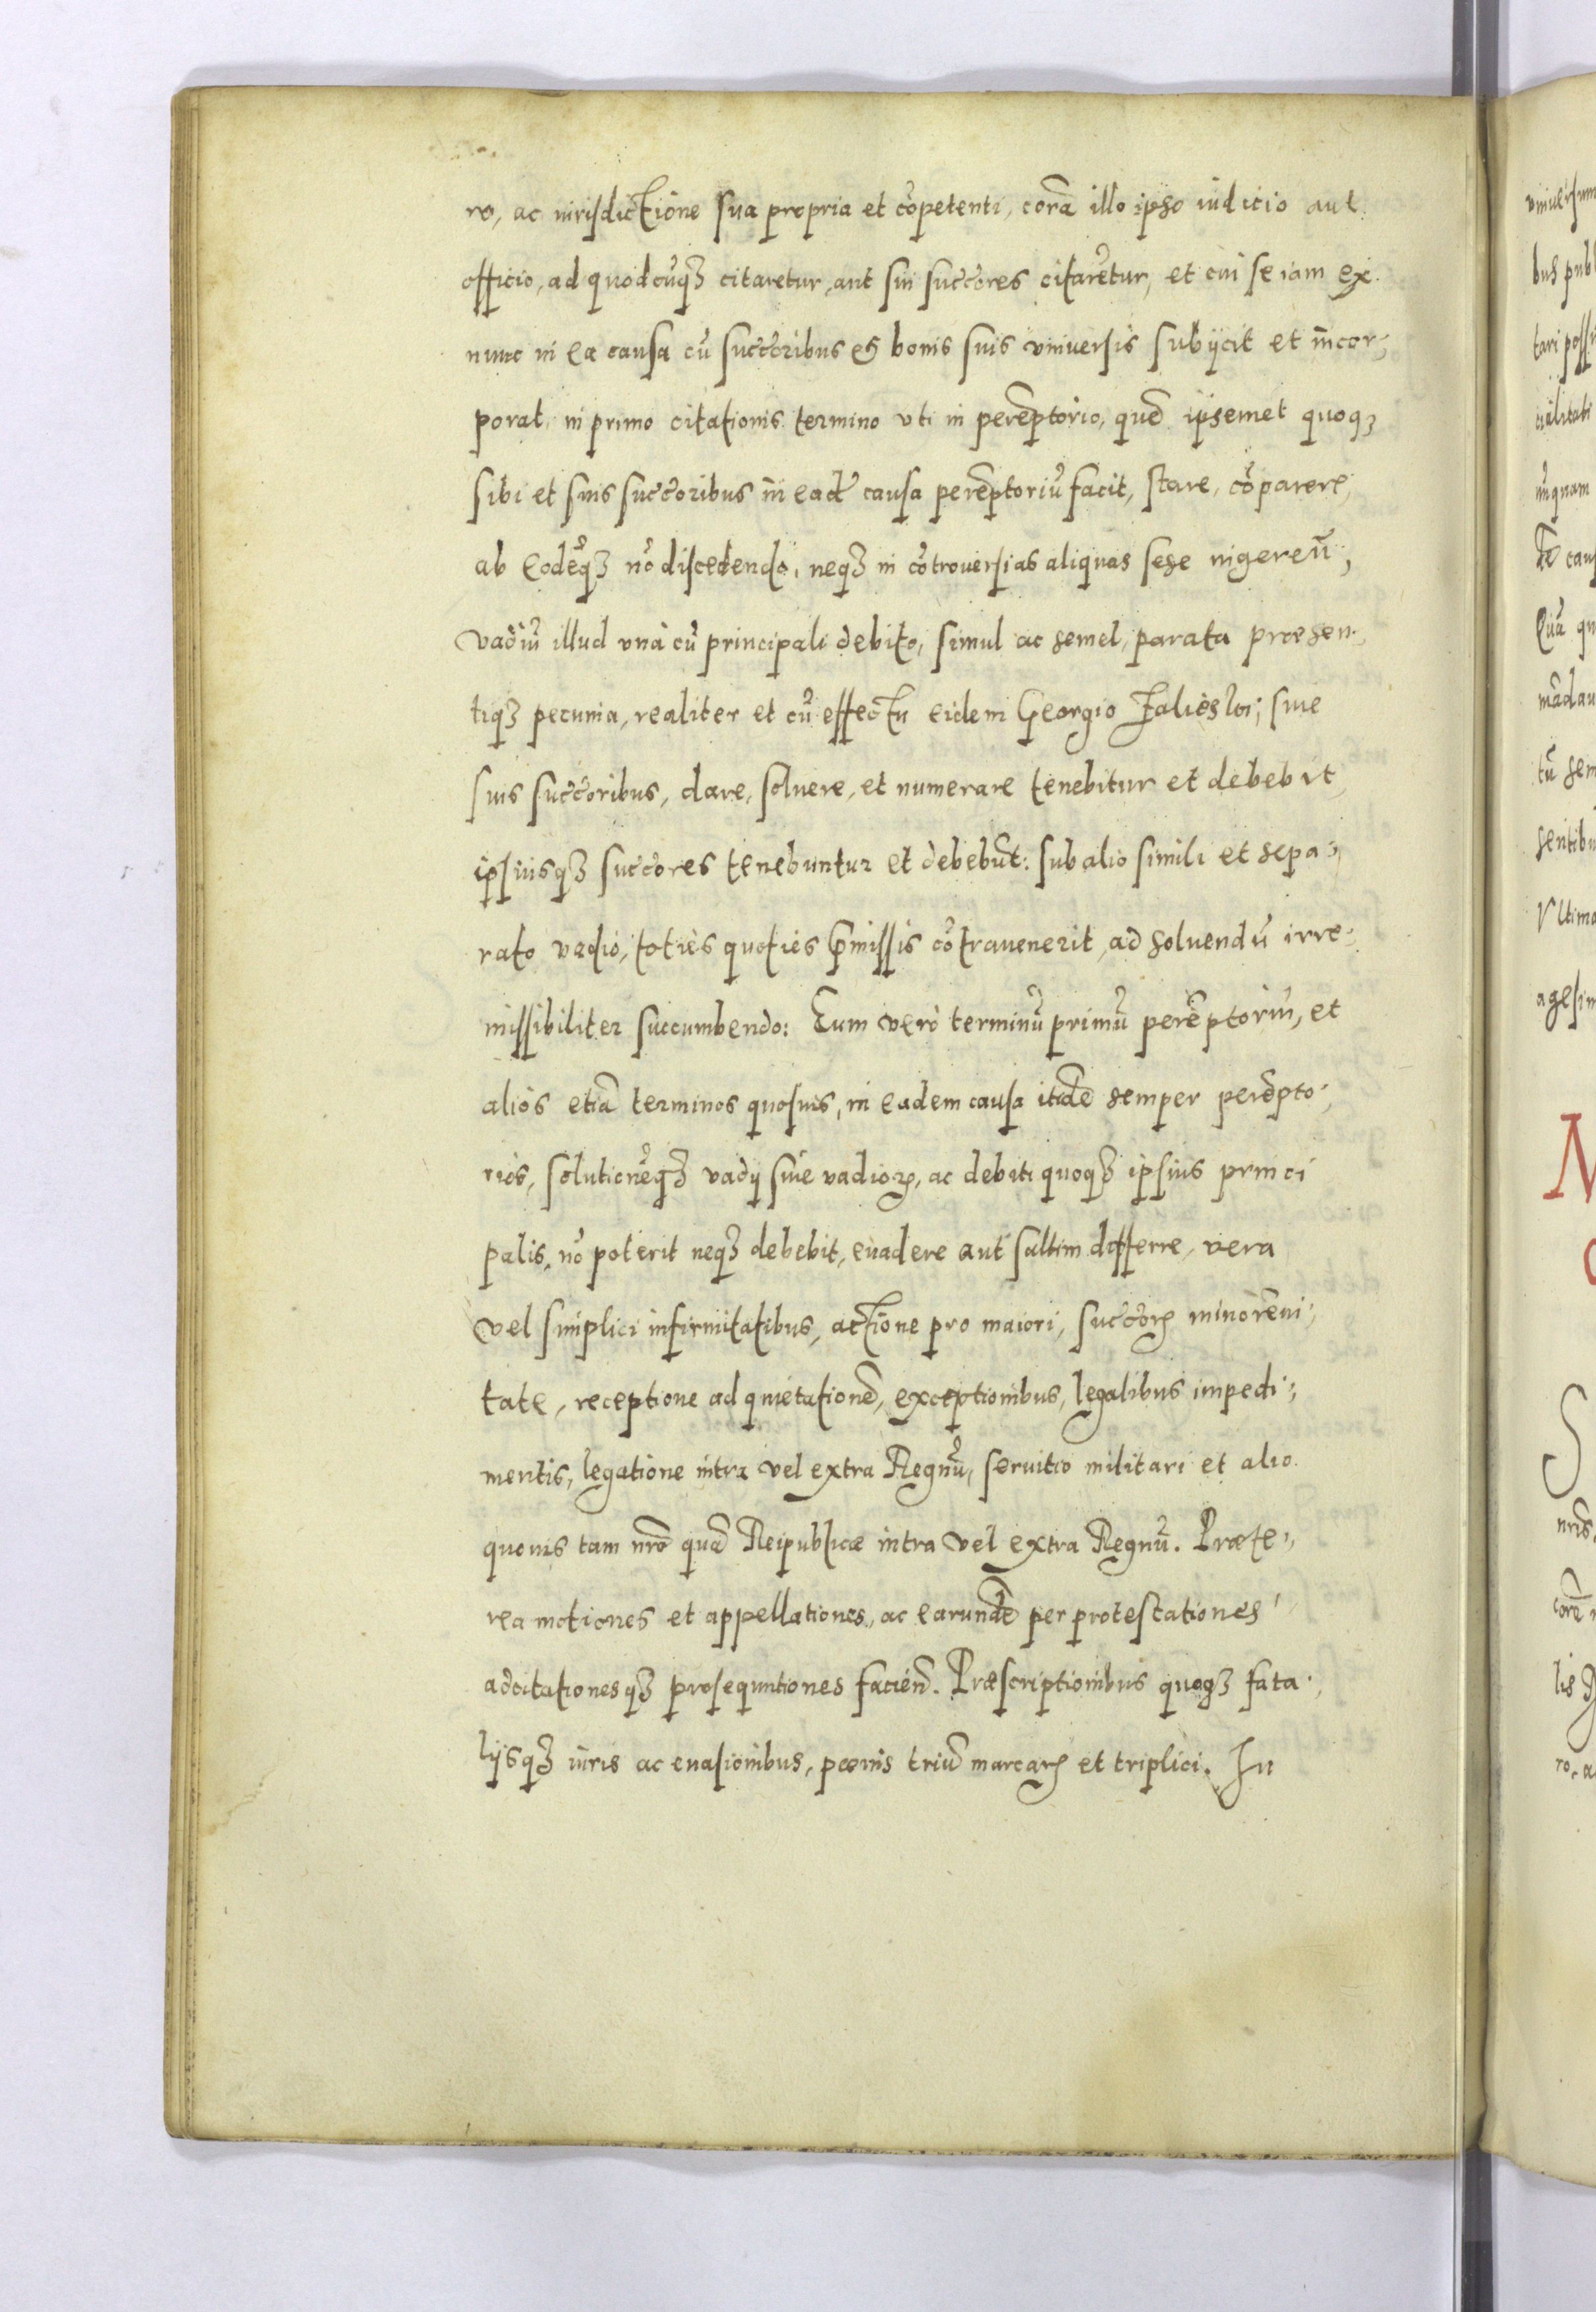 ro, ac iurisdictione sua propria et cōpetenti, corā illo ipso iudicio aut
officio, ad quodcūq₃ citaretur, aut sui succ̄ores citarētur, et cui se iam ex
nunc in ea causa cū succ̄oribus et bonis suis vniuersis subijcit et incor-
porat, in primo citationis termino vti in perēptorio, quē ipsemet quoq₃
sibi et suis succ̄oribus in eadē causa perēptoriū facit, stare, cōparere,
ab eodēq₃ nō discedendo, neq₃ in cōtrouersias aliquas sese ingeren̄,
vadiū illud vnà cū principali debito, simul ac semel, parata præsen-
tiq₃ pecunia, realiter et cū effectu eidem Georgio Jalieskoi; siue
suis succ̄oribus, dare, soluere, et numerare tenebitur et debebit,
ipsiusq₃ succ̄ores tenebuntur et debebūt: sub alio simili et sepa-
rato vadio, toties quoties p̄missis cōtrauenerit, ad soluendū irre-
missibiliter succumbendo: Eum verò terminū primū perēptoriū, et
aliòs etiā terminos quosuis, in eadem causa itidē semper perēpto-
rios, solutionēq₃ vadij siue vadioꝝ, ac debiti quoq₃ ipsius princi
palis, nō poterit neq₃ debebit, euadere aut saltim differre, vera
vel simplici infirmitatibus, actione pro maiori, succ̄oꝝ minorēni-
tate, receptione ad quietationē, exceptionibus, legalibus impedi-
mentis, legatione intra vel extra Regnū, seruitio militari et alio
quouis tam nr̄o quā Reipublicæ intra vel extra Regnū. Præte-
rea motiones et appellationes, ac earundē per protestationes
adcitationesq₃ prosequutiones faciēn̄. Præscriptionibus quoq₃ fata-
lijsq₃ iuris ac euasionibus, pœnis triū marcaꝝ et triplici. In